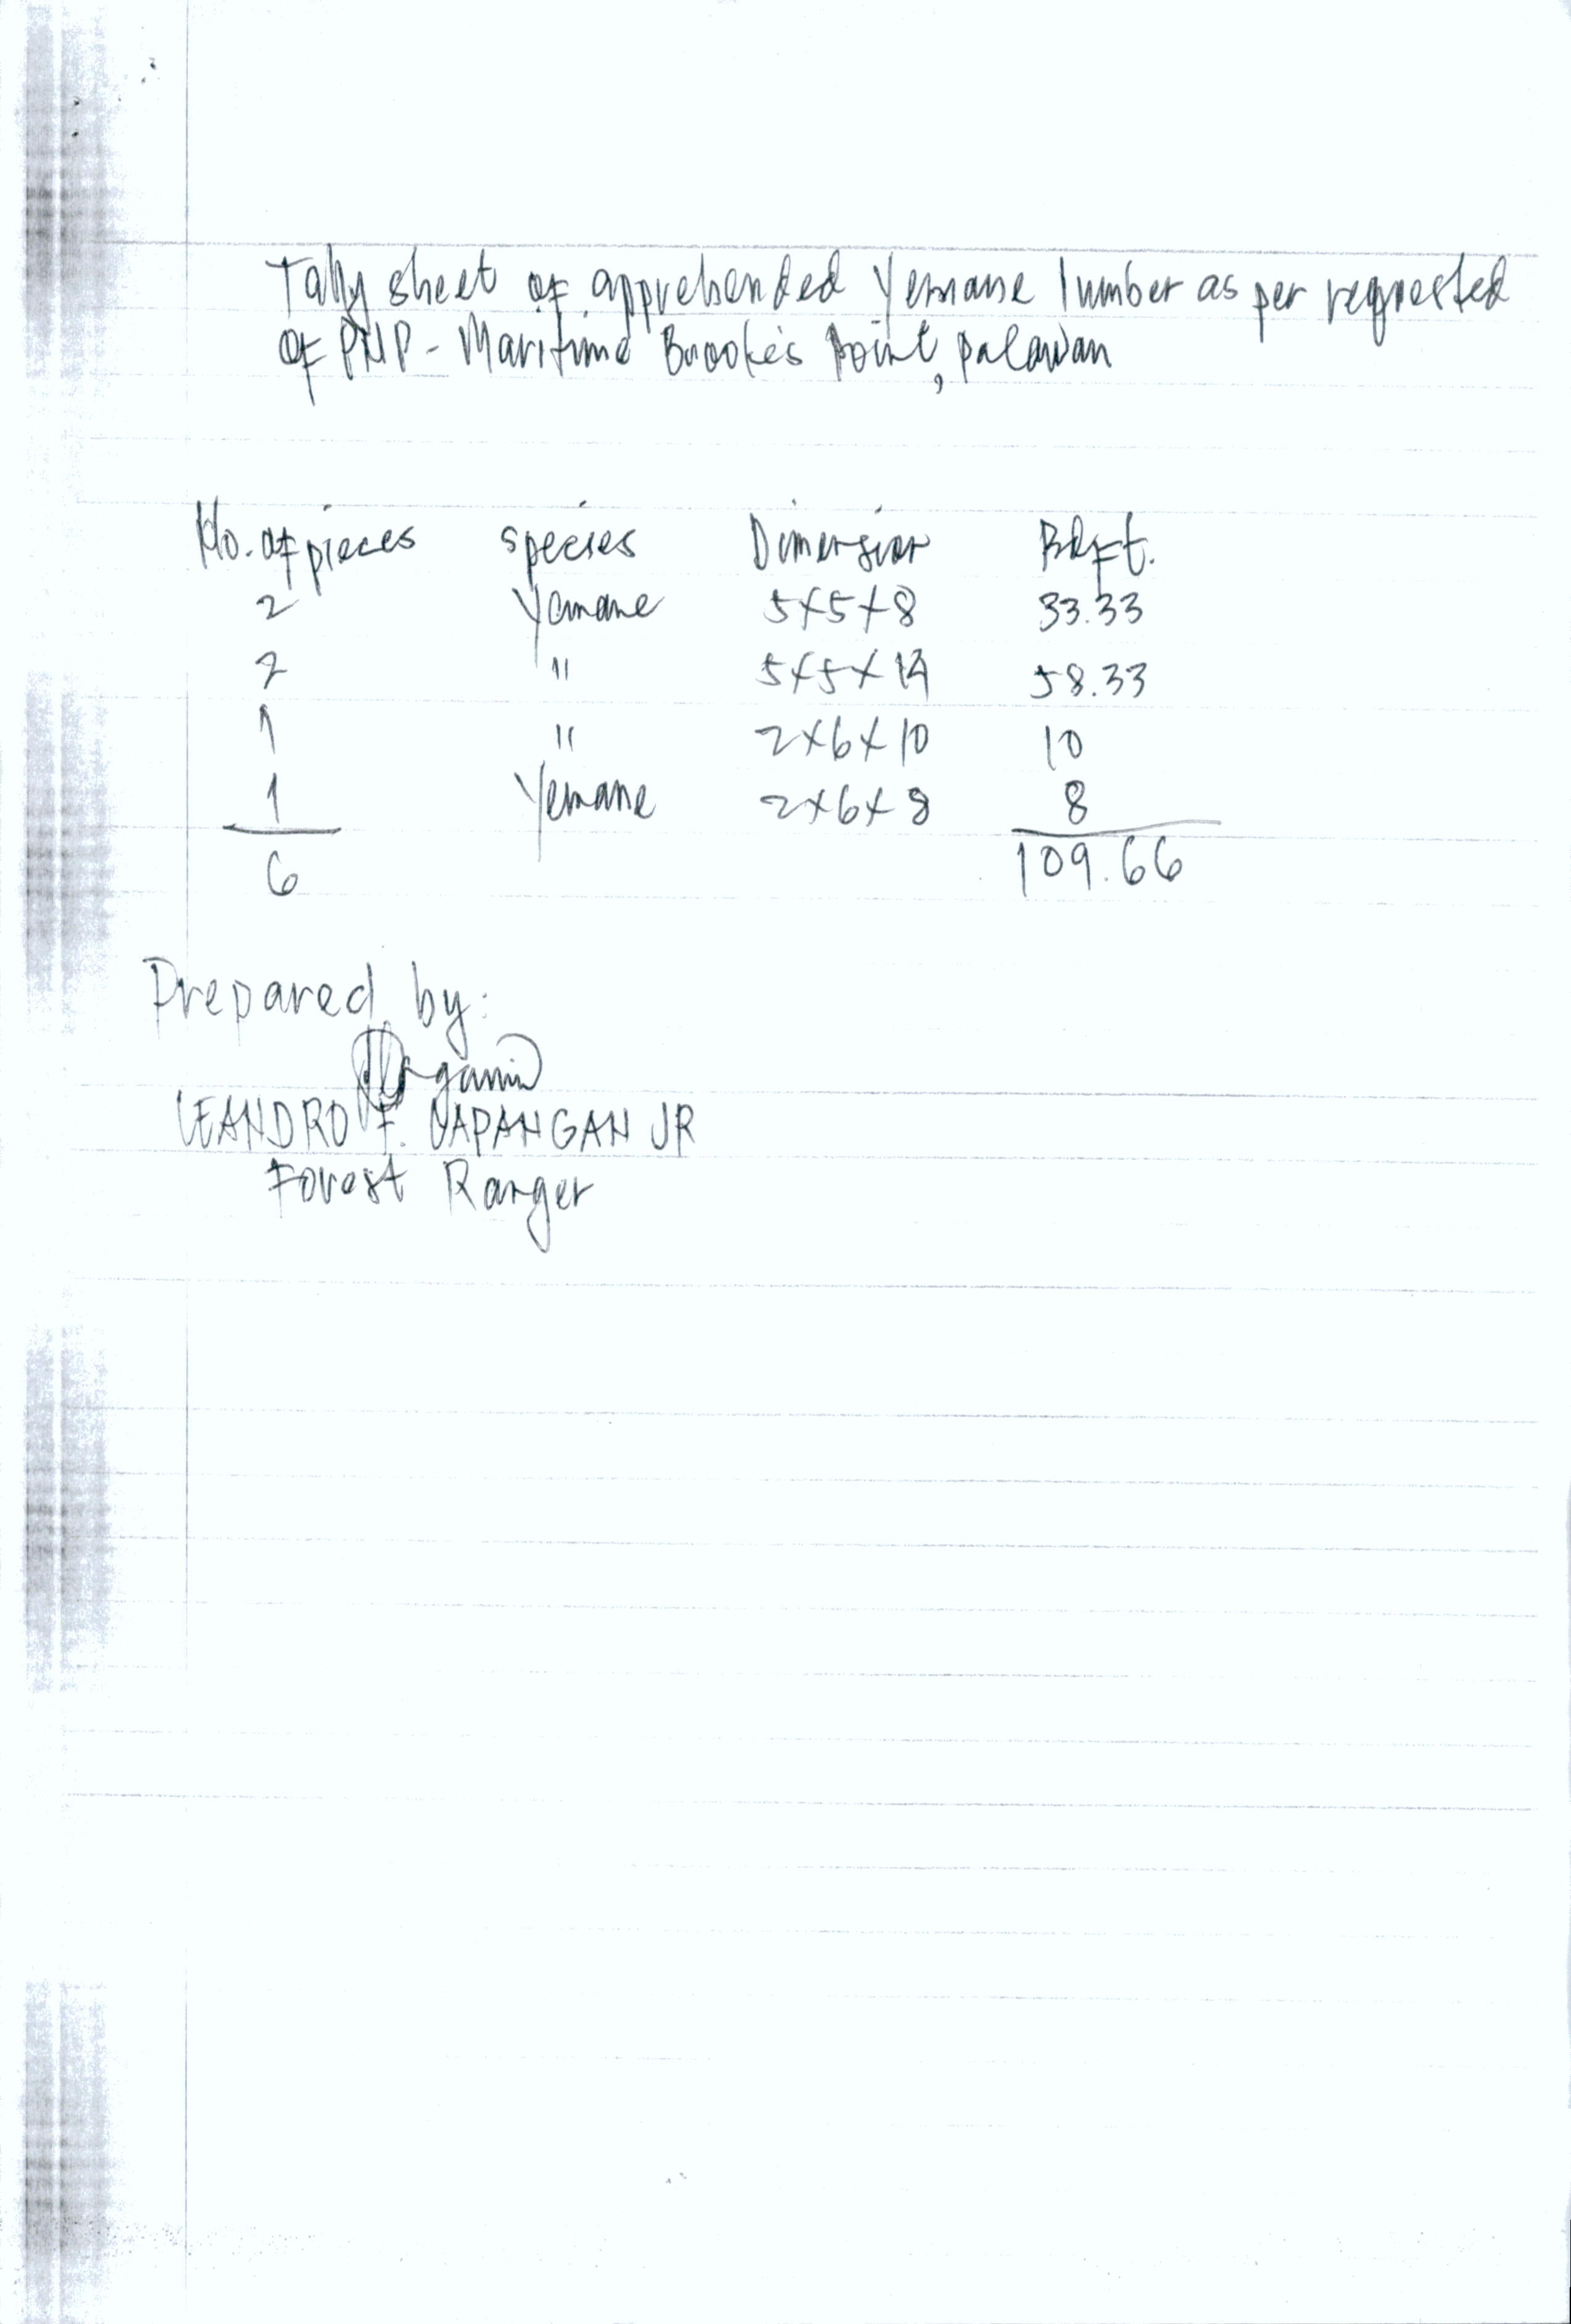 Tally sheet of apprehended Yemane lumber as per requested
of PNP - Maritime Brooke's Point, palawan
No. of pieces species Dimension Bdft.
2 Yemane 5x5x8 33.33
2 " 5x5x14 58.33
1 " 2x6x10 10
1 Yemane 2x6x8 8
6 109.66
Prepared by:
LEANDRO F. DAPANGAN JR
Forest Ranger